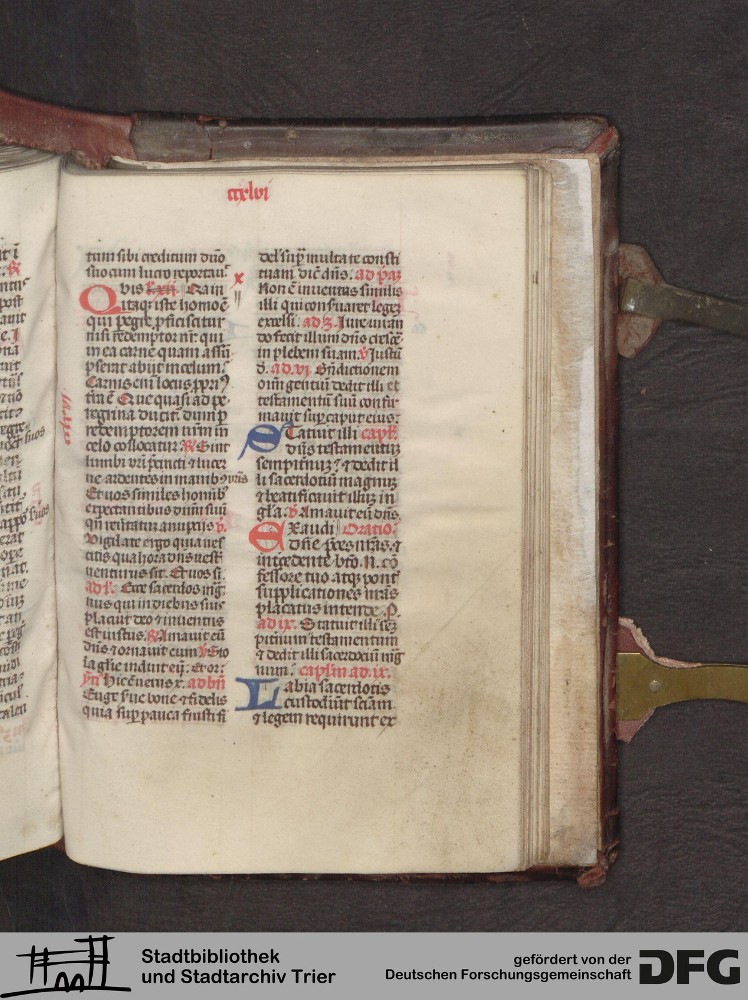 ccxlvi
tum sibi creditum dño
suo cum lucro reportaũ
Quis
itaq; iste homo ē
qui pegre pficiscatur
nisi redemptor nr̃ qui
in ea carne quam assũ
pserat abijt in celum.
Carnis eni locus ppri⁹
t̃ra ē Que quasi ad pe
regrina ducit̃ dum p
redemptorem nr̃m in
celo collocatur. R̃ Sint
lumbi vr̃i p̃cincti ⁊ lucer
ne ardentes in manib⁹ vr̃is
Et vos similes homĩb⁹
expectantibus dñm suũ
qñ reuertatur a nuptijs v̊.
Vigilate ergo quia nes
citis qua hora dñs vest̃
venturus sit. Et vos si.
ad l'. Ecce sacerdos mg̃
nus qui in diebus suis
placuit deo ⁊ inuentus
est iustus. R̃ Amauit eũ
dñs ⁊ ornauit eum v̊ Sto
la glĩe induit eũ. Et or:
yñ Hic est verus x. ad bñ
Euge s̃ue bone ⁊ fidelis
quia sup pauca fuisti fi
del' sup̃ multa te consti
tuam dic̃ dñs. ad pãz
Non ē inuentus similis
illi qui conseruaret legẽ
excelsi. ad 3. Iureiuran
do fecit illum dño cresc̃e
in plebem suam. v̊ Iustũ
d. ad .vi. Bñdictionem
oĩm gentiũ dedit illi et
testamentũ suũ confir
mauit sup caput eius:
Statuit illi capl'.
dñs testamentũ
sempitnuz ⁊ dedit il
li sacerdotiũ magnuz
⁊ beatificauit illuz in
gl'a. v̊ Amauit eũ dñs.
Exaudi Oratio
dñe p̃ces nr̃as. ⁊
int̃cedente bt̃o .N. cõ
fessore tuo atq; pont̃
supplicationes nr̃as
placatus intende. P.
ad ix. Statuit illi sez
piternum testamentum
⁊ dedit illi sacerdociũ mg̃
num. caplm ad .ix.
Labia sacerdotis
custodiũt sciam
⁊ legem requirunt ex
Stadtbibliothek
und Stadtarchiv Trier
gefördert von der
Deutschen Forschungsgemeinschaft
DFG